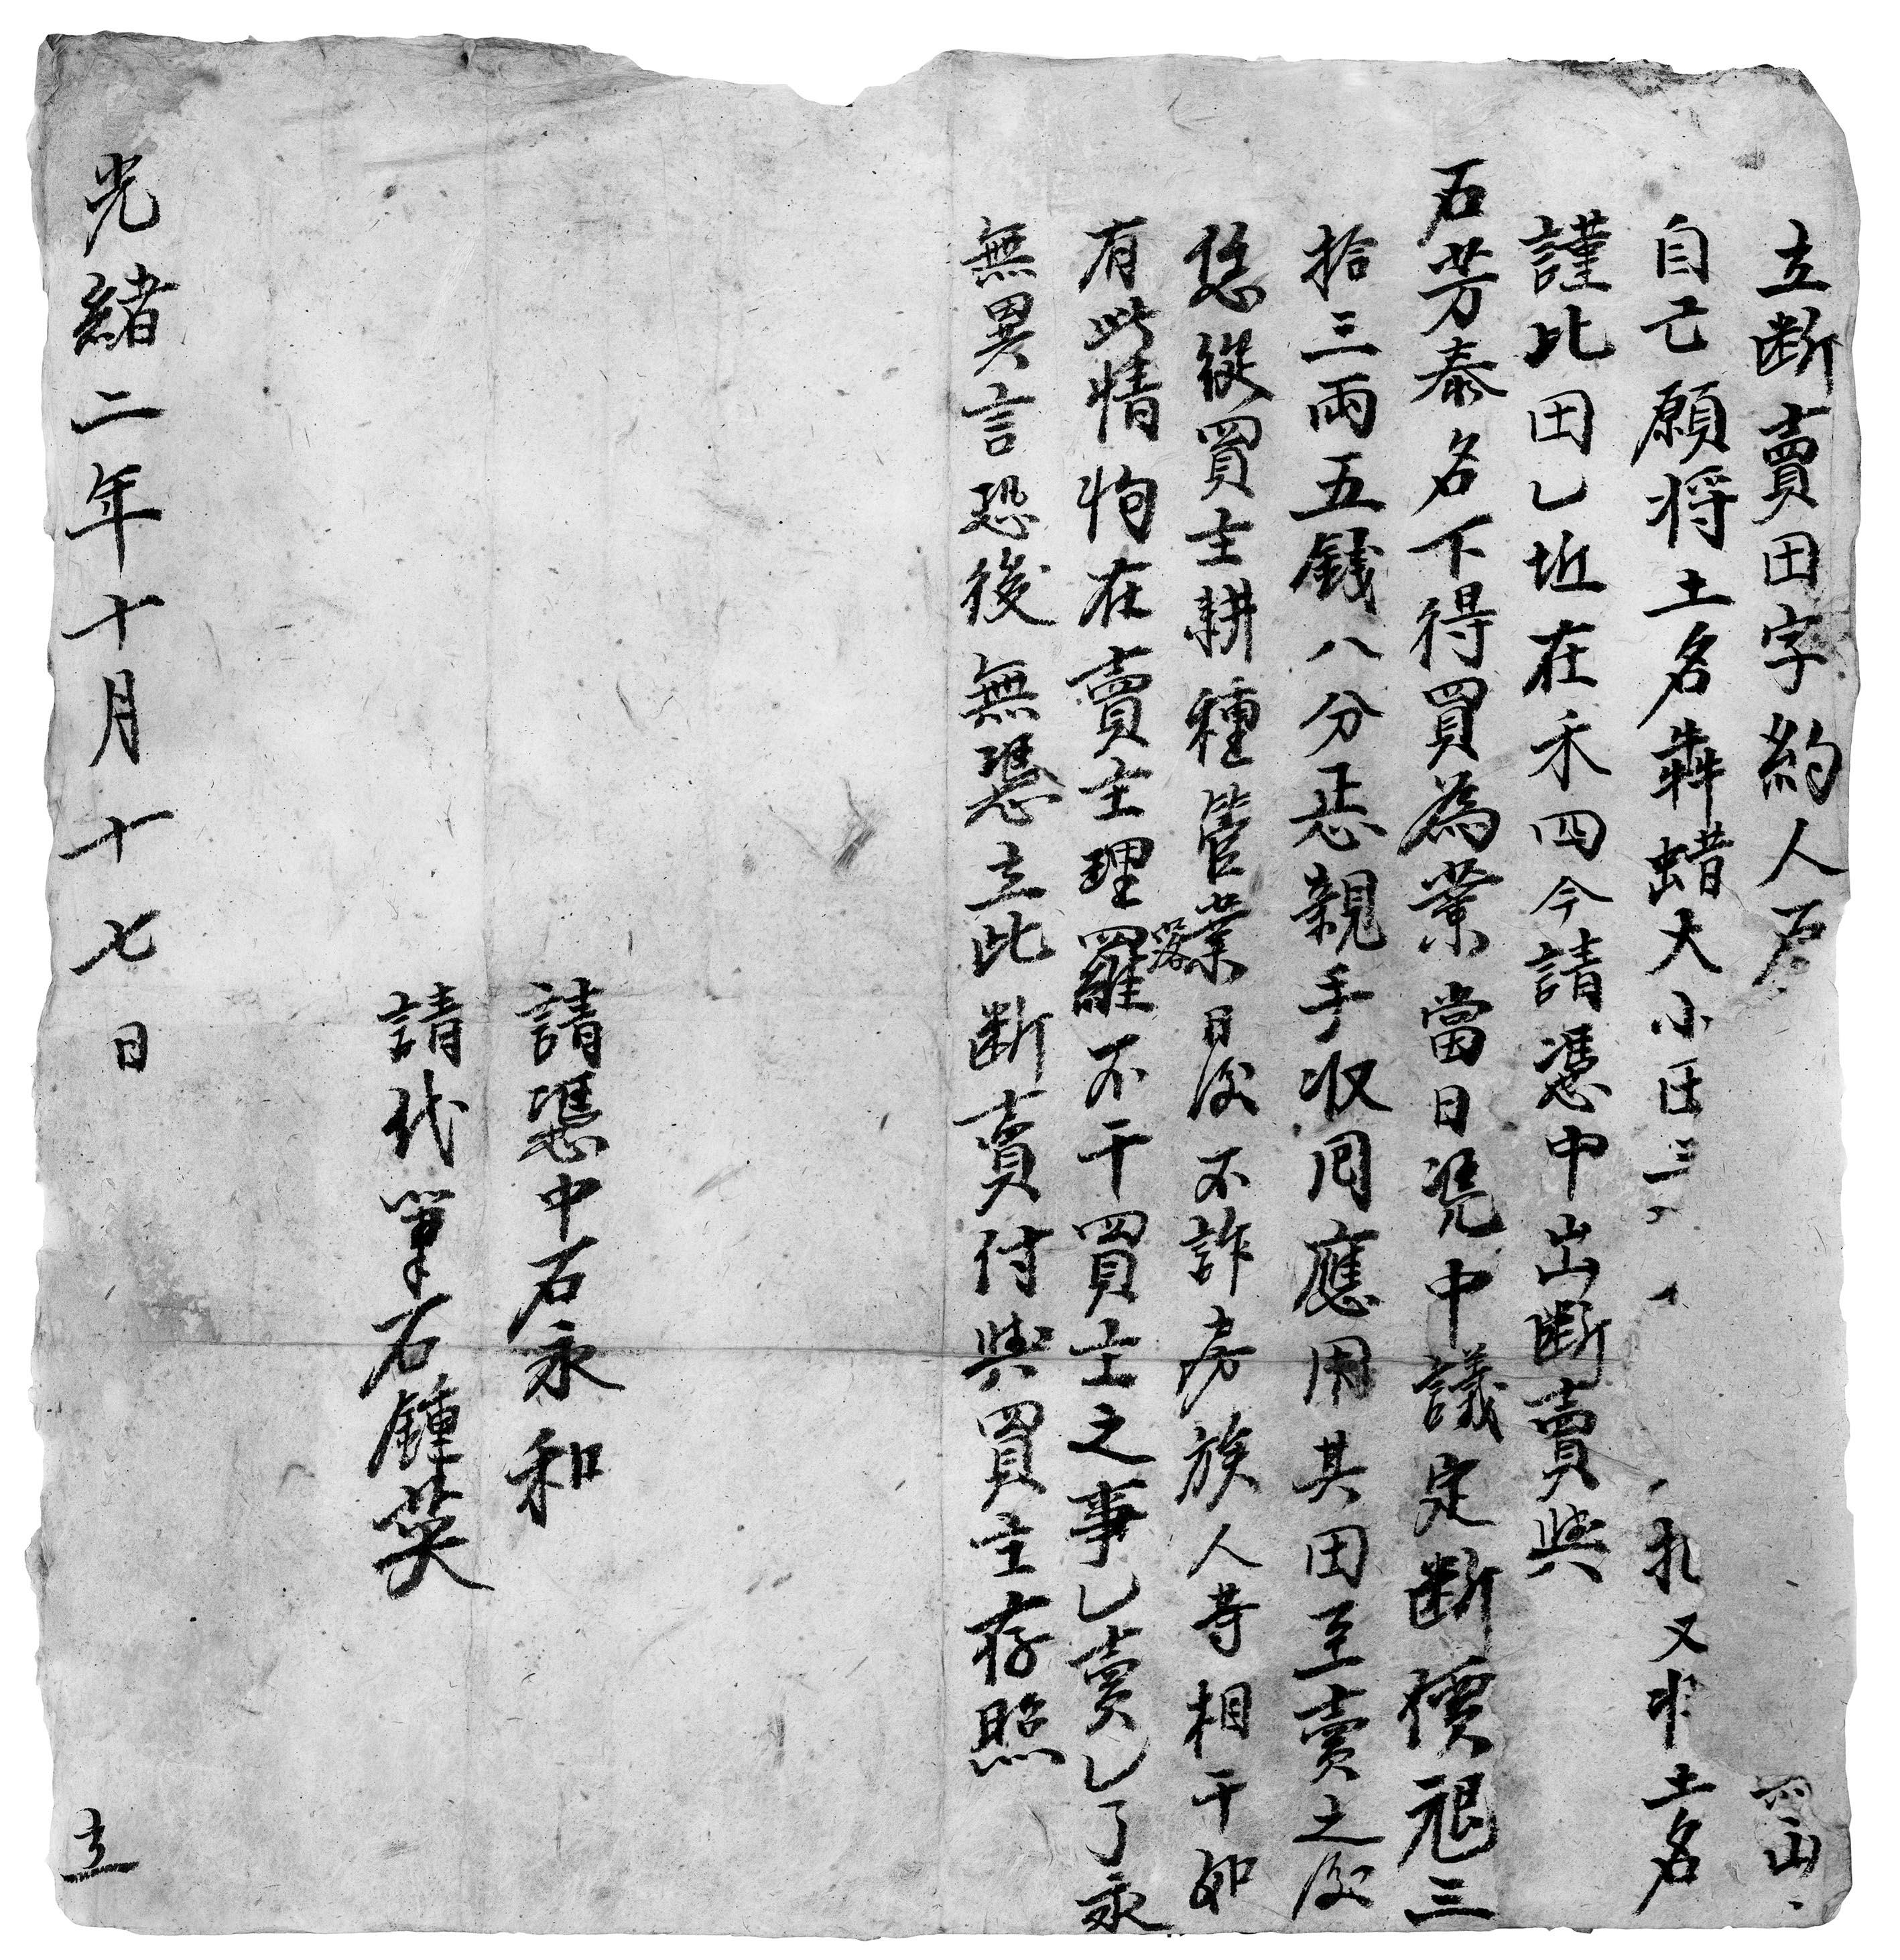 立断賣田字約人石
自己願将土名犇蜡大小田三 又并土名
謹比田乚坵在禾四今請憑中出断賣與
石芳泰名下得買為業當日凭中議定断價艮三
拾三両五錢八分恁親手収囘應用其田至賣之後
恁從買主耕種管業日後不許房族人等相干如
有此情怐在賣主理羅不干買主之事乚賣乚了永
無異言恐後無憑立此断賣付與買主存照
請憑中石永和
請代筆石鍾英
光緒二年十月十七日 立